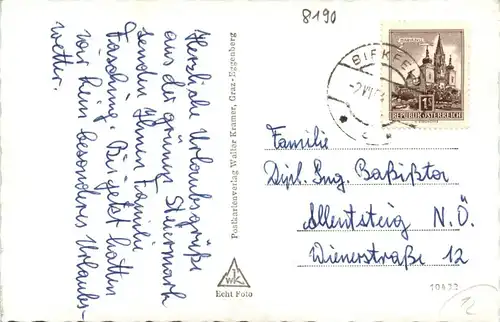 8190
Herzliche Urlaubsgrüße
aus der grünen Steiermark
senden Ihnen Familie
Bis jetzt hatten
wir kein besonderes Urlaubs-
wetter.
Postkartenverlag Walter Kramer, Graz-Eggenberg
wk
Echt Foto
BIRKFE
REPUBLIK ÖSTERREICH
Familie
Dipl. Ing. Baßißtor
Allentsteig N.Ö.
Wienerstraße 12
10422
12